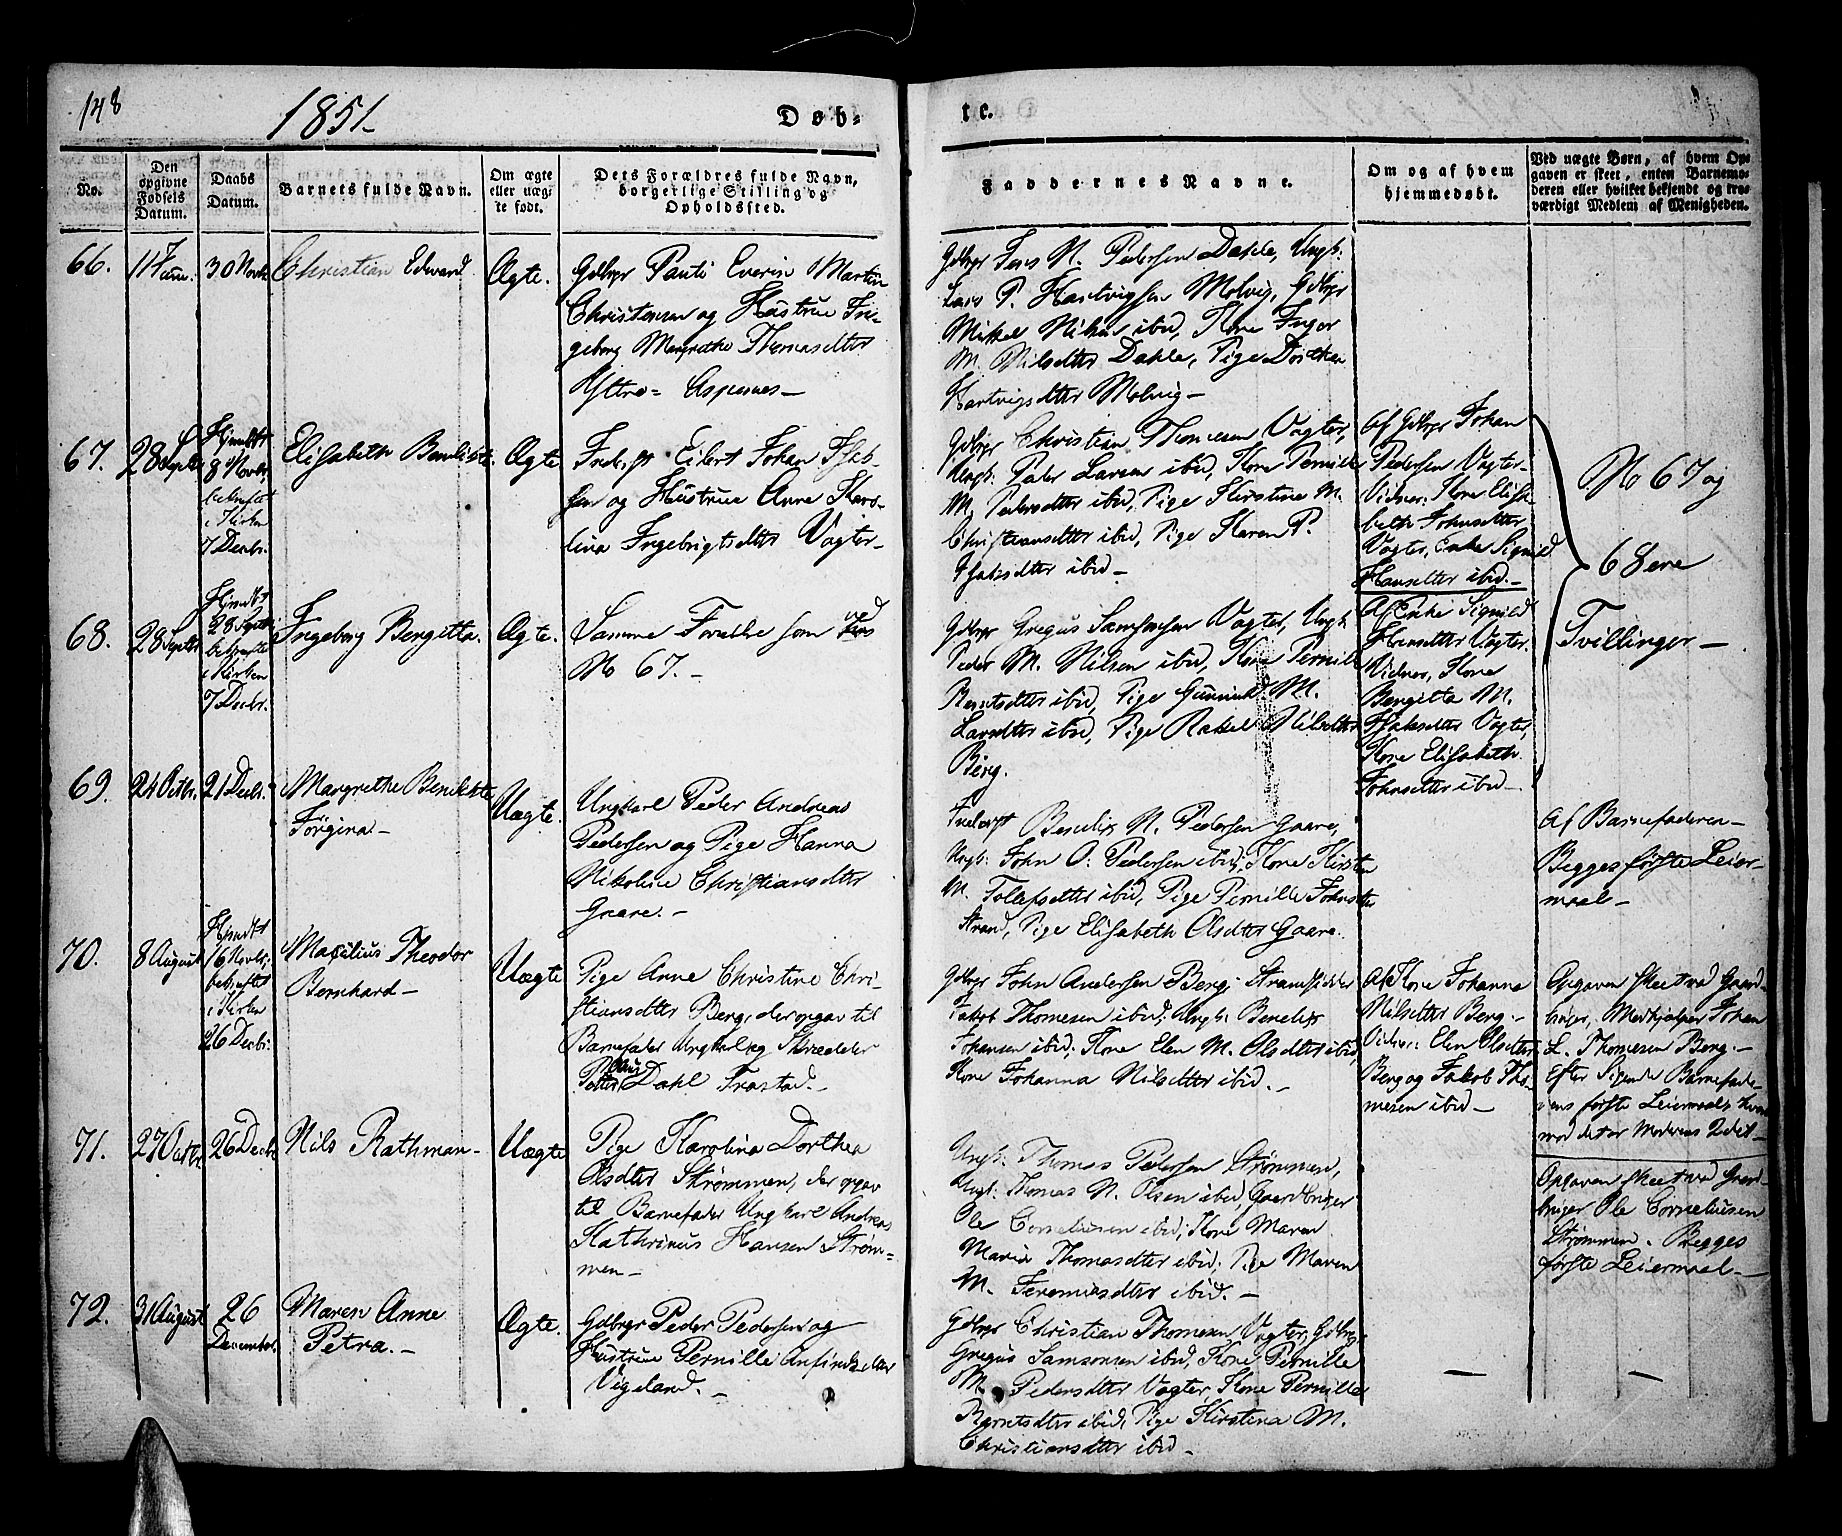 148
1851
Døb-
te.
No.
Den opgivne Fødsels Datum.
Daabs Datum.
Barnets fulde Navn.
Om ægte eller uægte født.
Dets Forældres fulde Navn, borgerlige Stilling og Opholdssted.
Faddernes Navne.
Om og af hvem hjemmedøbt.
Ved uægte Børn, af hvem Opgaven er skeet, enten Barnemoderen eller hvilket bekjendt og troværdigt Medlem af Menigheden.
66.
30 Novbr.
Christian Edvard
Ægte.
Gdbrgr Pauli Everin Martin
Christensen og Hustrue In-
geborg Margrethe Thomasdtter
Ystre- Aspenes-
Gdbrgr Jens N. Pedersen Dahle, Ungk:
Lars P. Hartvigsen Molvig, Gdbrgr
Mikkel Nilsen ibid, Kone Inger
M. Nilsdtter Dahle, Pige Dorthea
Hartvigsdtter Molvig-
67.
28 Septbr
Hjmdbt
8 Novbr,
bekræftet
i Kirken
7 Decbr.
Elisabeth Benedikte.
Ægte
Eilert Johan Isak-
sen og Hustrue Anne Karo-
lina Ingebrigtsdtter Vagter-
Gdbrgr Christian Thomesen Vagter,
Ungk: Peder Larsen ibid, Kone Pernille
M. Pedersdtter ibid, Pige Kirstine M.
Christiansdtter ibid, Pige Karen P.
Isaksdtter ibid-
Af Gdbrgr Johan
Pedersen Vagter-
Vidner: Kone Elisa-
beth Johnsdtter
Vagter, Enke Signild
Hansdtter ibid.-
No 67 og
68 ere
Tvillinger-
68.
28 Septbr
Hjmdbt
28 Septbr
bekræftet
i Kirken
7 Decbr.
Ingeborg Bergitta.
Ægte.
Samme Forældre som ved
No 67.-
Gdbrgr Gregus Samsonsen Vagter, Ungk:
Peder M. Nilsen ibid, Kone Pernille
Berntsdtter ibid, Pige Gunnild M.
Larsdtter ibid, Pige Rakel Nilsdtter
Berg.
Af Enke Signild
Hansdtter Vagter.
Vidner, Kone
Bergitta M.
Isaksdtter Vagter,
Kone Elisabeth
Johnsdtter ibid-
69.
24 Octbr.
21 Decbr.
Margrethe Benedikte
Jørgina-
Uægte.
Ungkarl Peder Andreas
Pedersen og Pige Hanna
Nikoline Christiansdtter
Gaare.-
Benedix N. Pedersen Gaare,
Ungk: John O: Pedersen ibid, Kone Kirsten
M. Tollefsdtter ibid, Pige Pernille Johnsdtter
Strand, Pige Elisabeth Olsdtter Gaare.
Af Barnefaderen-
Begges første Leier-
maal-
70.
8 August
Hjmdbt
16 Novbr.
bekræftet
i Kirken
26 Decbr.
Marcilius Theodor
Bernhard-
Uægte
Pige Anne Christine Chri-
stiansdtter Berg, der opgav til
Barnefader Ungkarl og Skrædder
Dahl Trastad.-
Gdbrgr John Andersen Berg, Strandsidder
Jakob Thomesen ibid, Ungk: Benedix
Johansen ibid; Kone Elen M. Olsdtter ibid,
Kone Johanna Nilsdtter ibid.-
Af Kone Johanna
Nilsdtter Berg-
Vidner: Elen Olsdtter
Berg og Jakob Tho-
mesen ibid-
Opgaven skeet ved Gaard-
bruger, Medhjælper Johan
L. Thomesen Berg.-
Efter Sigende Barnefade-
rens første Leiermaal, hvor-
mod det er Moderens 2det-
71.
27 Octbr.
26 Decbr.
Nils Rathman-
Uægte
Pige Karolina Dorthea
Olsdtter Strømmen, der opgav
til Barnefader Ungkarl Andreas
Kathrinus Hansen Strøm-
men-
Ungk: Thomas Pedersen Strømmen,
Ungk: Thomas N. Olsen ibid, Gaardbruger
Ole Corneliusen ibid; Kone Maren
Maria Thomasdtter ibid; Pige Maren
M. Jeremiasdtter ibid.-
Opgaven skeet ved Gaard-
bruger Ole Corneliusen
Strømmen. Begges
første Leiermaal-
72.
31 August
26
December
Maren Anne
Petra.-
Ægte.
Gdbrgr Peder Pedersen og
Hustrue Pernille Anfindsdtter
Vigeland.-
Gdbrgr Christian Thomesen Vagter, Gdbrgr
Gregus Samsonsen ibid, Kone Pernille
M. Pedersdtter Vagter, Kone Pernille
Berntsdtter ibid, Pige Kirstina M.
Christiansdtter ibid-